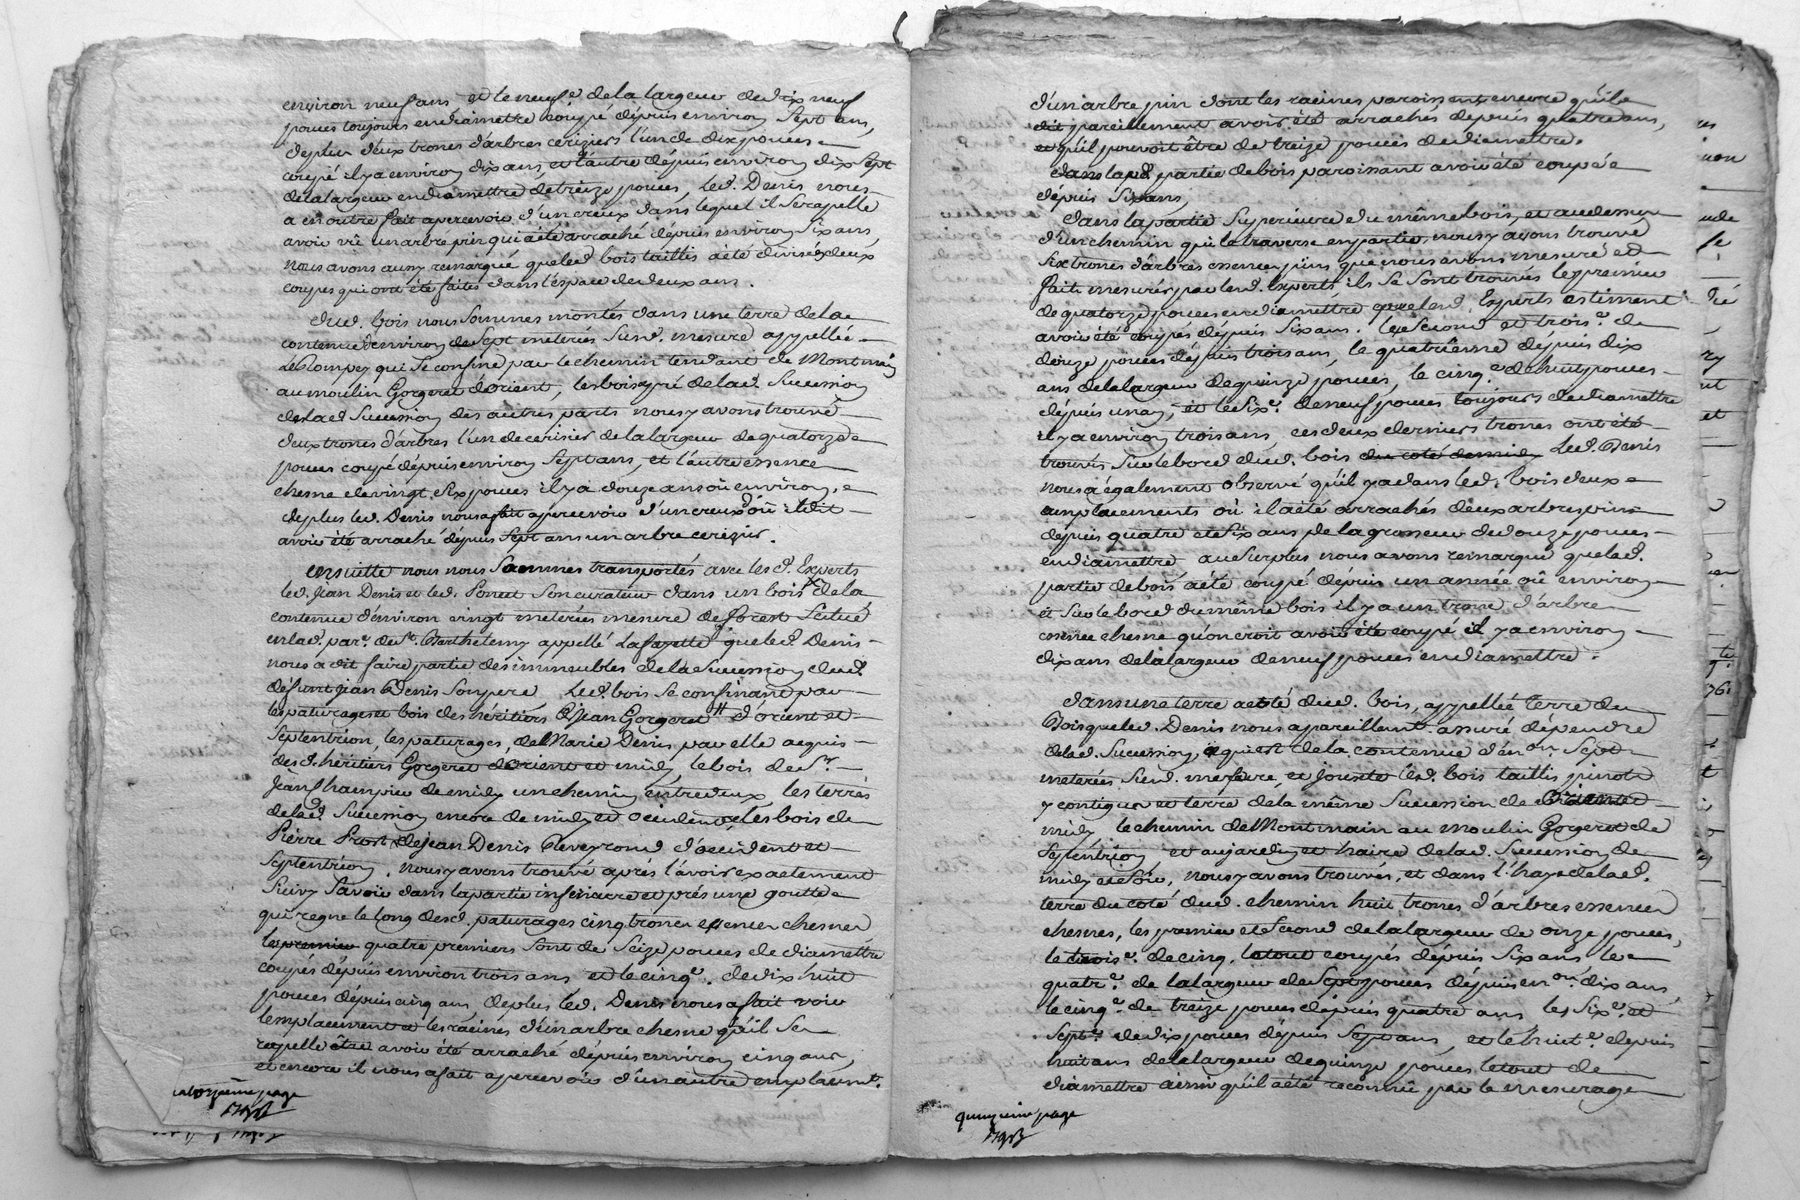 environ neuf ans et le neuf.e de la largeur de dix neuf
pouces toujours en diametre coupé dépuis environ sept ans,
de plus deux troncs d'arbres ceriziers l'un de dix pouces
coupé il y a environ dix ans, et l'autre dépuis environ dix sept
de la largeur en diamettre de treize pouces, led. Denis nous
a en outre fait apercevoir d'un creux dans lequel il se rapelle
avoir vû un arbre pin qui a été arraché dépuis environ six ans
nous avons aussy remarqué que led. bois taillis a été divisé deux
coupes qui ont été faites dans l'éspace de deux ans.
dud. bois nous sommes montés dans une terre de la
contenue d'environ de sept meterés susd. mesure appellée
qui se confine par le chemin tendant de Montmain
au moulin Gorgeret d'orient, les bois pré de lad. succession
de lad. succession des autres parts nous y avons trouvé
deux troncs d'arbres l'un de cerisier de la largeur de quatorze
pouces coupé dépuis environ sept ans, et l'autre essence
chesne de vingt six pouces il y a douze ans ou environ,
de plus led. Denis nous a fait apercevoir d'un creux d'où il dit
avoir été arraché dépuis sept ans un arbre cerizier.
ensuitte nous nous sommes transportés avec les d. Experts
led. Jean Denis et led. Poncet son curateur dans un bois de la
contenue d'environ vingt meterées mesure de forest situé
en lad. par.e de St. Barthelemy appellé La fayette que led. Denis
nous a dit faire partie des immeubles de la succession dud.
défunt Jean Denis son pere led. bois se confinant par
les paturages et bois des héritiers Jean Gorgeret d'orient et
septentrion, les paturages, de Marie Denis par elle acquis
des d. héritiers Gorgeret d'orient et midy, le bois de Sr.
Jean Champier de midy un chemin entredeux, les terres
de lad. succession encore de midy et occident, et les bois de
Pierre Prost de Jean Denis Cleveyrond d'occident et
septentrion, nous y avons trouvé aprés l'avoir exactement
suivy savoir dans la partie inferieure et prés une goutte
qui regne le long desd. paturages cinq troncs essence chesnes
les premiers quatre premiers sont de seize pouces de diamettre
coupés dépuis environ trois ans et le cinq.e de dix huit
pouces dépuis cinq ans de plus led. Denis nous a fait voir
l'emplacement et les racines d'un arbre chesne qu'il se
rapelle être avoir été arraché dépuis environ cinq ans,
et encore il nous a fait apercevoir d'un autre emplacem.t
quatorzieme page
d'un arbre pin dont les racines paroissent encore qu'il
dit pareillement avoir été arrachés depuis quatre ans,
et qu'il pouvoit être de treize pouces de diamettre.
dans lad. partie de bois paroissant avoir été coupée
dépuis six ans,
dans la partie superieure du même bois, et au dessus
d'un chemin qui le traverse en partie, nous y avons trouvé
six troncs d'arbres essence pins que nous avons mesuré et
fait mesurés par lesd. Experts ils se sont trouvés le premier
de quatorze pouces en diamettre que lesd. Experts estiment
avoir été coupés dépuis six ans, les second et trois.e de
douze pouces dépuis trois ans, le quatrième depuis dix
ans de la largeur de quinze pouces, le cinq.e de huit pouces
dépuis un an, et le six.e de neuf pouces toujours de diamettre
il y a environ trois ans, ces deux derniers troncs ont été
trouvés sur le bord dud. bois du coté de midy led. Denis
nous a également observé qu'il y a dans led. bois deux
emplacements où il a été arrachés deux arbres pins
dépuis quatre et six ans de la grosseur de douze pouces
en diamettre au surplus nous avons remarqué que lad.
partie de bois a été coupé dépuis un année où environ
et sur le bord du même bois il y a un tronc d'arbre
essence chesne qu'on croit avoir été coupé il y a environ
dix ans de la largeur de neuf pouces en diamettre.
dans une terre a coté dud. bois, appellée terre du
Bois que led. Denis nous a pareillem.t assuré dépendre
de lad. succession, qui est de la contenue d'en.on sept
meterées susd. mesure, et jouxte led. bois taillis pinoté
y contigue et terre de la même succession de
midy, le chemin de Montmain au moulin Gorgeret de
septentrion et au jardin et haire de lad. succession de
midy et soir, nous y avons trouvés, et dans l'haye de lad.
terre du coté dud. chemin huit troncs d'arbres essence
chesnes, les premier et second de la largeur de onze pouces,
le trois.e de cinq, le tout coupés dépuis six ans le
quatr.e de la largeur de sept pouces dépuis en.on dix ans
le cinq.e de treize pouces dépuis quatre ans les six.e et
sept.e de dix pouces dépuis sept ans, et le huit.e depuis
huit ans de la largeur de quinze pouces le tout de
diamettre ainsi qu'il a été reconnû par le mesurage
quinzieme page